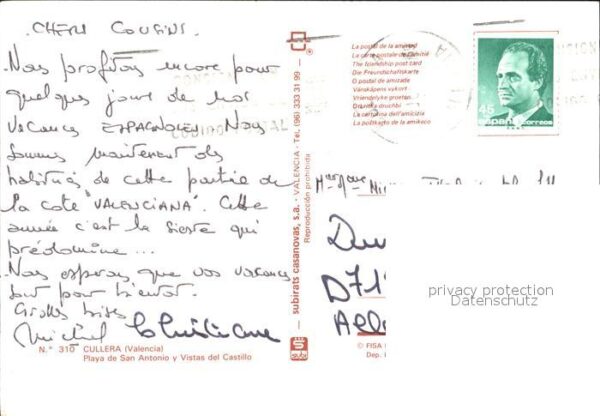 CHERS COUSINS.
Nous profitons encore pour
quelques jours de nos
vacances ESPAGNOLES. Nous
sommes maintenant des
habitués de cette partie de
la cote "VALENCIANA". Cette
année c'est la sieste qui
prédomine...
Nous esperons que vos vacances
sont pour bientot.
Grosses bises
Michel Christiane
N.° 310 CULLERA (Valencia)
Playa de San Antonio y Vistas del Castillo
subirats casanovas, s.a. - VALENCIA - Tel. (96) 333 31 99
Reproducción prohibida
subi
La postal de la amistad
La carte postale de l'amitié
The friendship post card
Die Freundschaftskarte
O postal de amizade
Vänskapens vykort
Vriendelijke groeten
La cartolina dell'amicizia
La postkarto de la amikeco
45
españa correos
CODIGO POSTAL
D71
privacy protection
Datenschutz
© FISA
Dep.